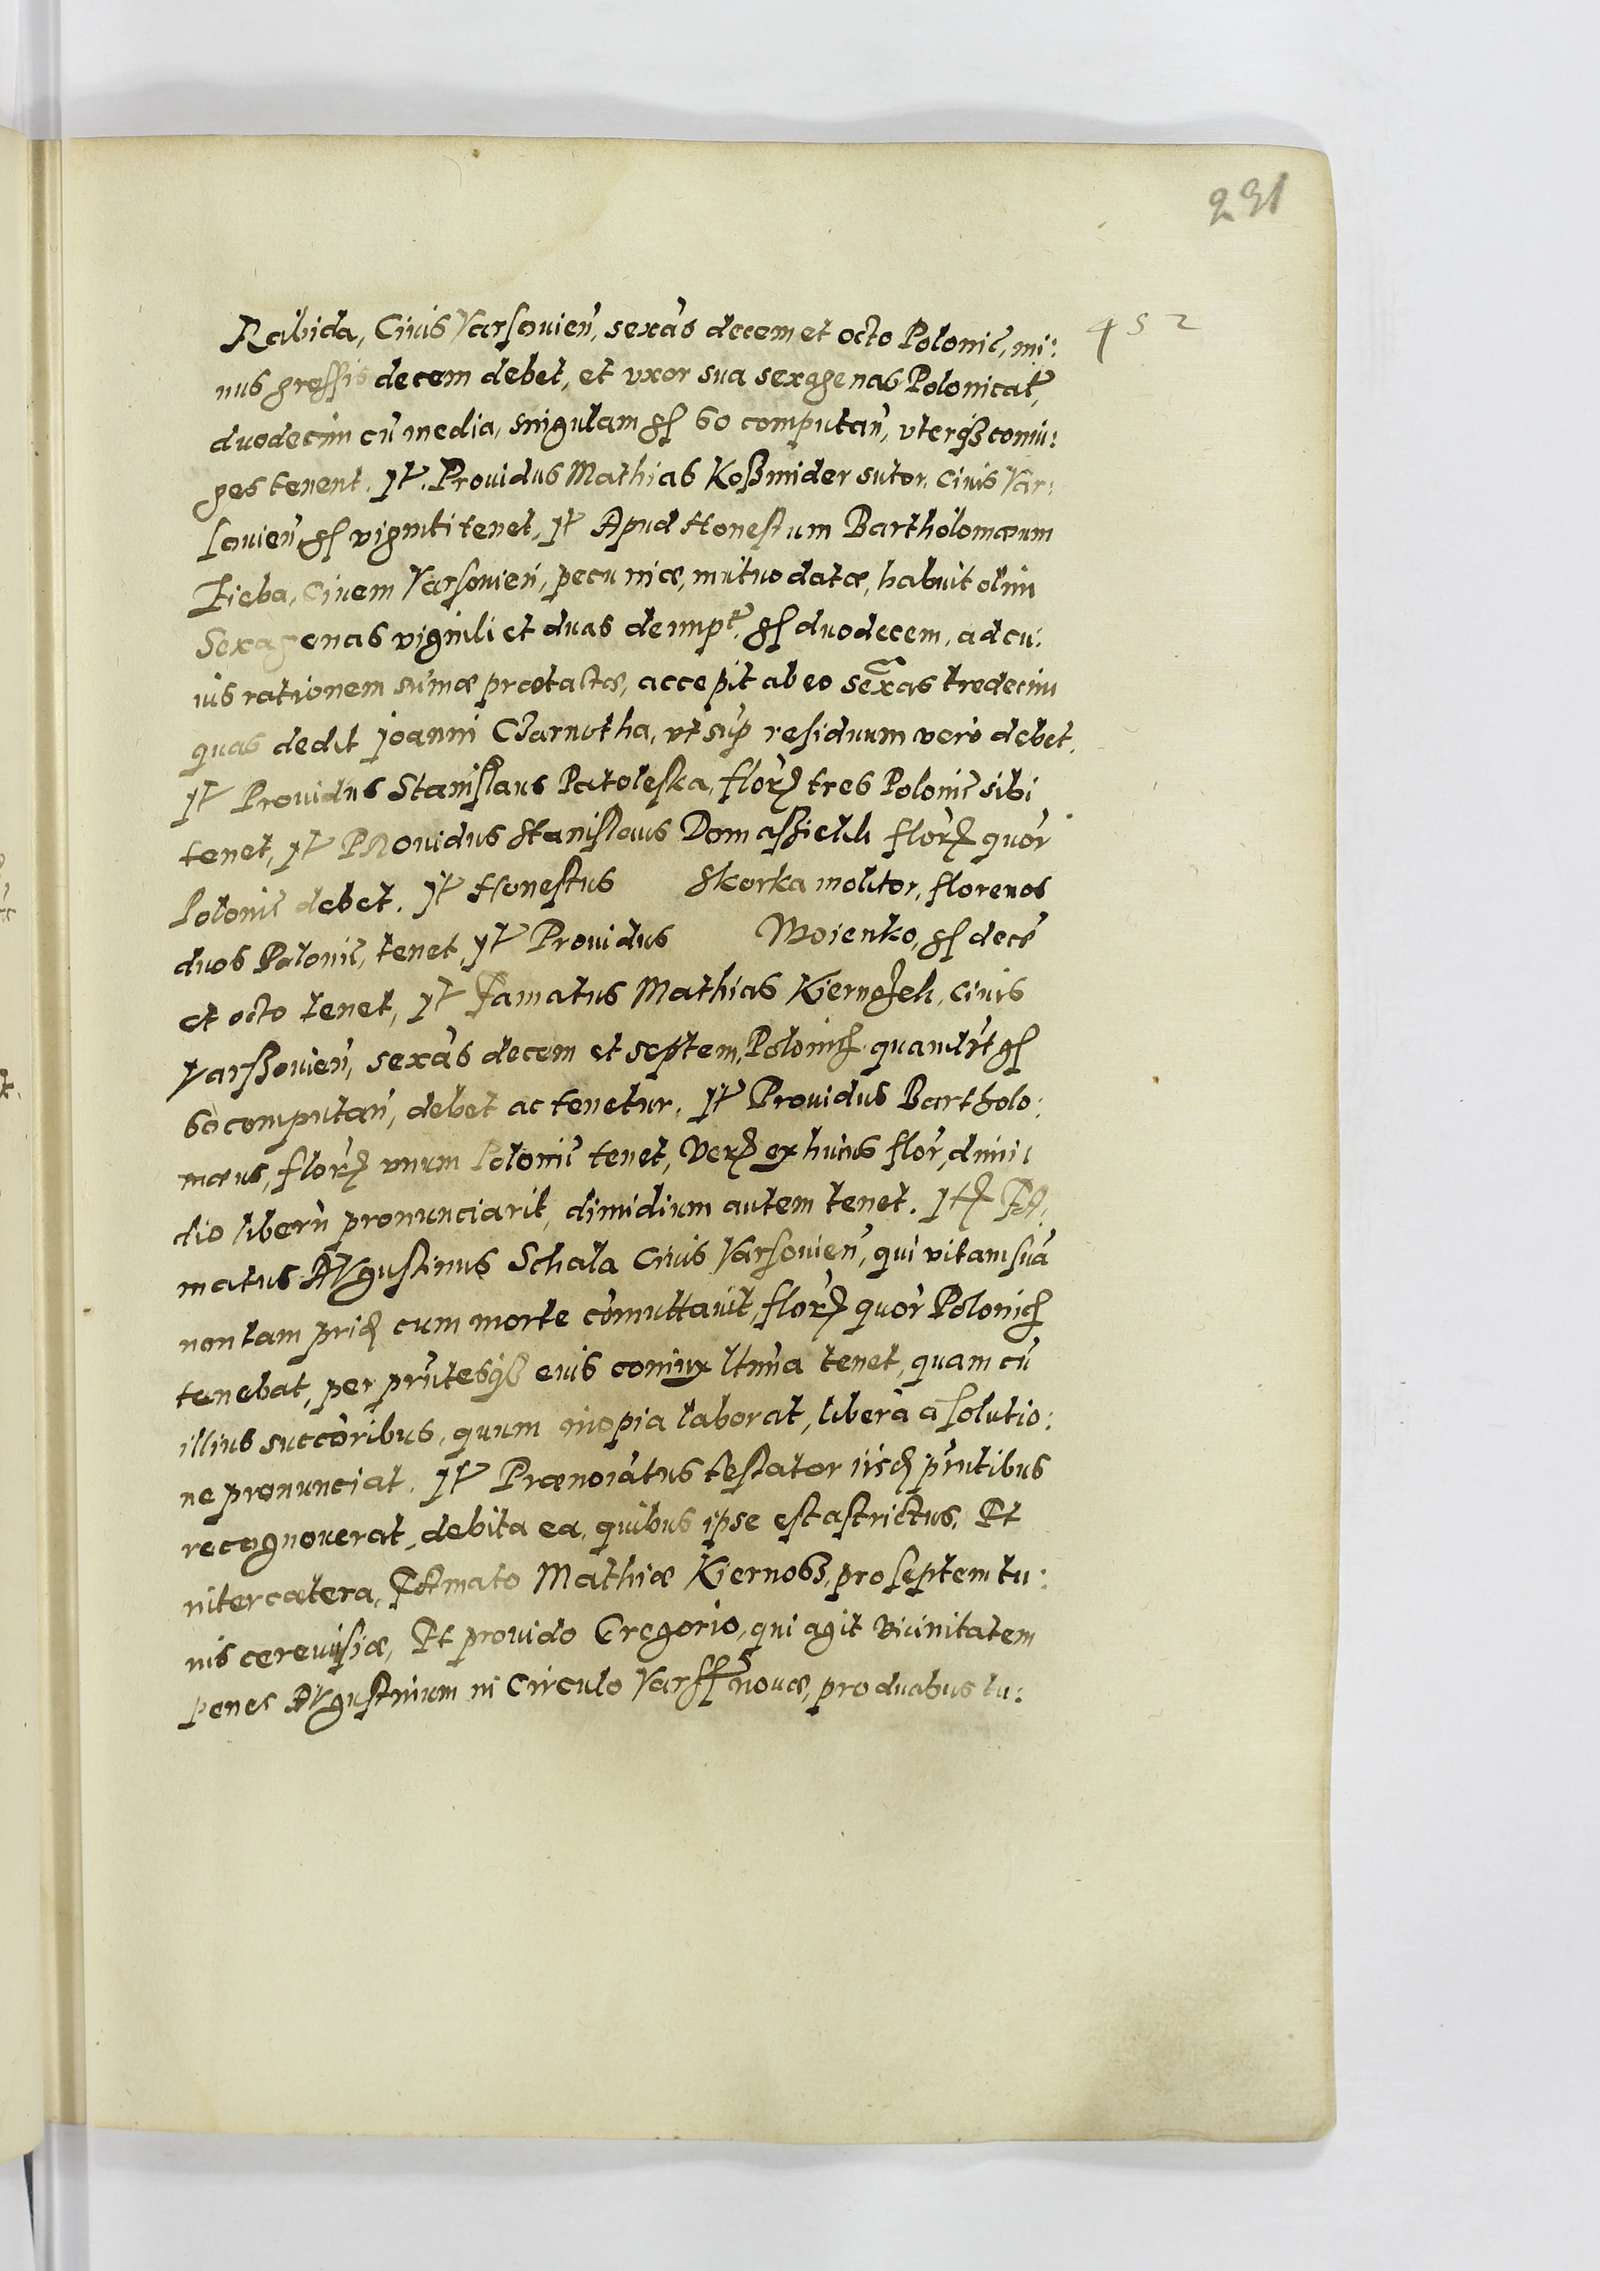 291
452
Rabida, Ciuis Varsouien, sexas decem et octo Polonic, mi:
nus grossis decem debet, et vxor sua sexagenas Polonicat,
duodecim cu media, singulam gs 60 computan, vterqz coniu:
ges tenent. It. Prouidus Mathias Koßmider sutor, Ciuis Var:
souien, gs viginti tenet, It Apud Honestum Bartholomæum
Zieba, Ciuem Varsouien, pecuniæ, mutuo datæ, habuit olim
Sexagenas viginti et duas dempt. gs duodecem, ad cu:
ius rationem sumæ prætactæ, accepit ab eo sexas tredecim
quas dedit Joanni Czarnotha, vt sup residuum vero debet.
It Prouidus Stanislaus Patoleska, flor tres Polonic sibi
tenet, It Prouidus Stanislaus Domaßielch flor quor
Polonic debet. It Honestus Skorka molitor, florenos
duos Polonic, tenet, It Prouidus Woienko, gs dece
et octo tenet, It Famatus Mathias Kiernozek, ciuis
Varßouien, sexas decem et septem, Polonich quamlit gs
60 computan, debet ac tenetur. It Prouidus Bartholo:
mæus, flor vnum Polonic tenet, Ver ex huius flor, dimi:
dio liberu pronunciarit, dimidium autem tenet. It Fa:
matus Augustinus Schala Ciuis Varsouien, qui vitam sua
non tam prid cum morte comuttauit, flor quor Polonich
tenebat, per prntesqz eius coniux ltima tenet, quam cu
illius succoribus, quum inopia laborat, libera a solutio:
ne pronunciat. It Prænoiatus testator iisd prntibus
recognouerat, debita ea, quibus ipse est astrictus. Et
inter cætera, Famato Mathiæ Kiernoß, pro septem tu:
nis cereuisiæ, Et prouido Gregorio, qui agit vicinitatem
penes Augustinum in Circulo Varss nouæ, pro duabus tu: